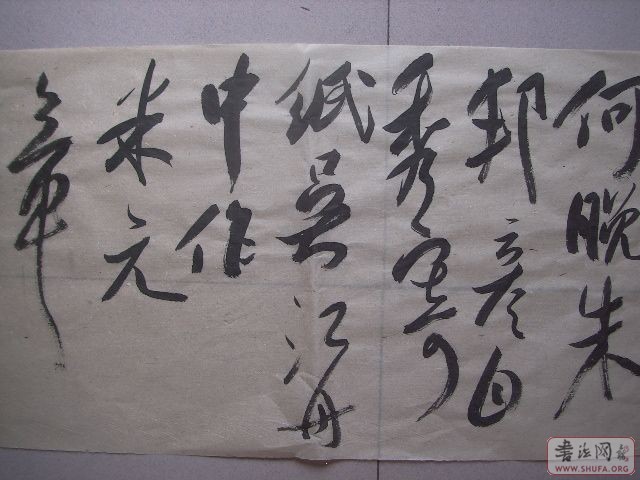 何晚朱
邦彦自
秀寄
纸吴江舟
中作
米元
章
書法网
WWW.SHUFA.ORG